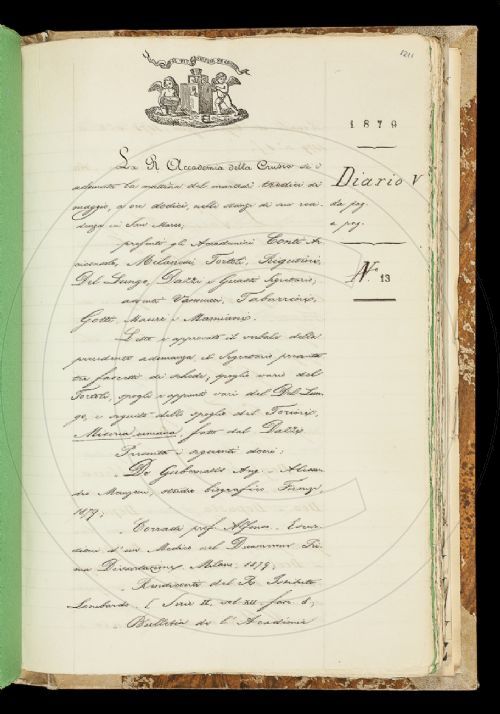 1211
1879
Diario V
da pag.
a pag.
N.° 13
La R. Accademia della Crusca si è
adunata la mattina del martedì tredici di
maggio, a ore dodici, nelle stanze di sua resi-
denza in San Marco,
presenti gli Accademici Conti Ar-
ciconsolo, Milanesi, Tortoli,
Del Lungo, Dazzi e Guasti Segretario,
assenti Vannucci, Tabarrini,
Gotti, Mauri e Mamiani.
Letto e approvato il verbale della
precedente adunanza, il Segretario presenta
tre fascetti di schede; spogli vari del
Tortoli, spogli e appunti vari del Del Lun-
go, e seguito dello spoglio del
Miseria umana, fatto dal Dazzi.
Presenta i seguenti doni:
De Gubernatis Ang. Alessan-
dro Manzoni, studio biografico. Firenze,
1879;
Corradi prof. Alfonso. Escur-
sione d'un Medico nel Decameron. Pri-
ma Milano, 1879;
Rendiconti del R. Istituto
Lombardo. Serie II, vol. XII, fasc. 8;
Bulletin de l'Académie